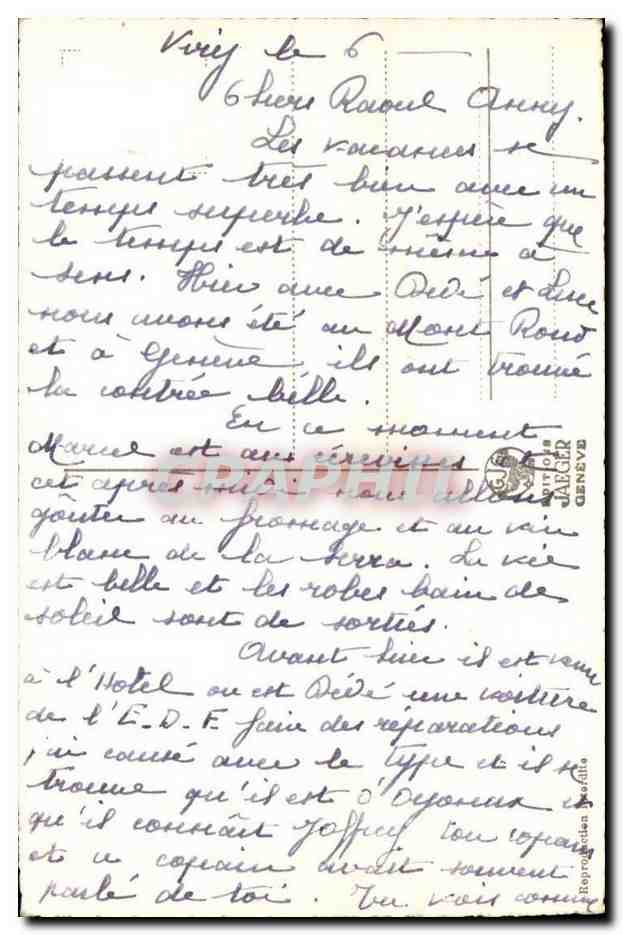 Viry le 6
Chers Raoul Anny.
Les vacances se
passent très bien avec un
temps superbe. J'espère que
le temps est de même à
Sens. Hier avec Dédé et Luce
nous avons été au Mont Rond
et à Genève, ils ont trouvé
la contrée belle.
En ce moment
Marcel est aux
cet après midi nous allons
goûter au fromage et au vin
blanc de la serra. La vie
est belle et les robes bain de
soleil sont de sorties.
Avant hier il est venu
à l'Hotel ou est Dédé une voiture
de l'E-D-F faire des réparations
j'ai causé avec le type et il se
trouve qu'il est d'Oyonnax et
qu'il connaît Joffrey ton copain
et ce copain avait souvent
parlé de toi. Tu vois comme
EDITIONS
JAEGER
GENÈVE
Reproduction interdite